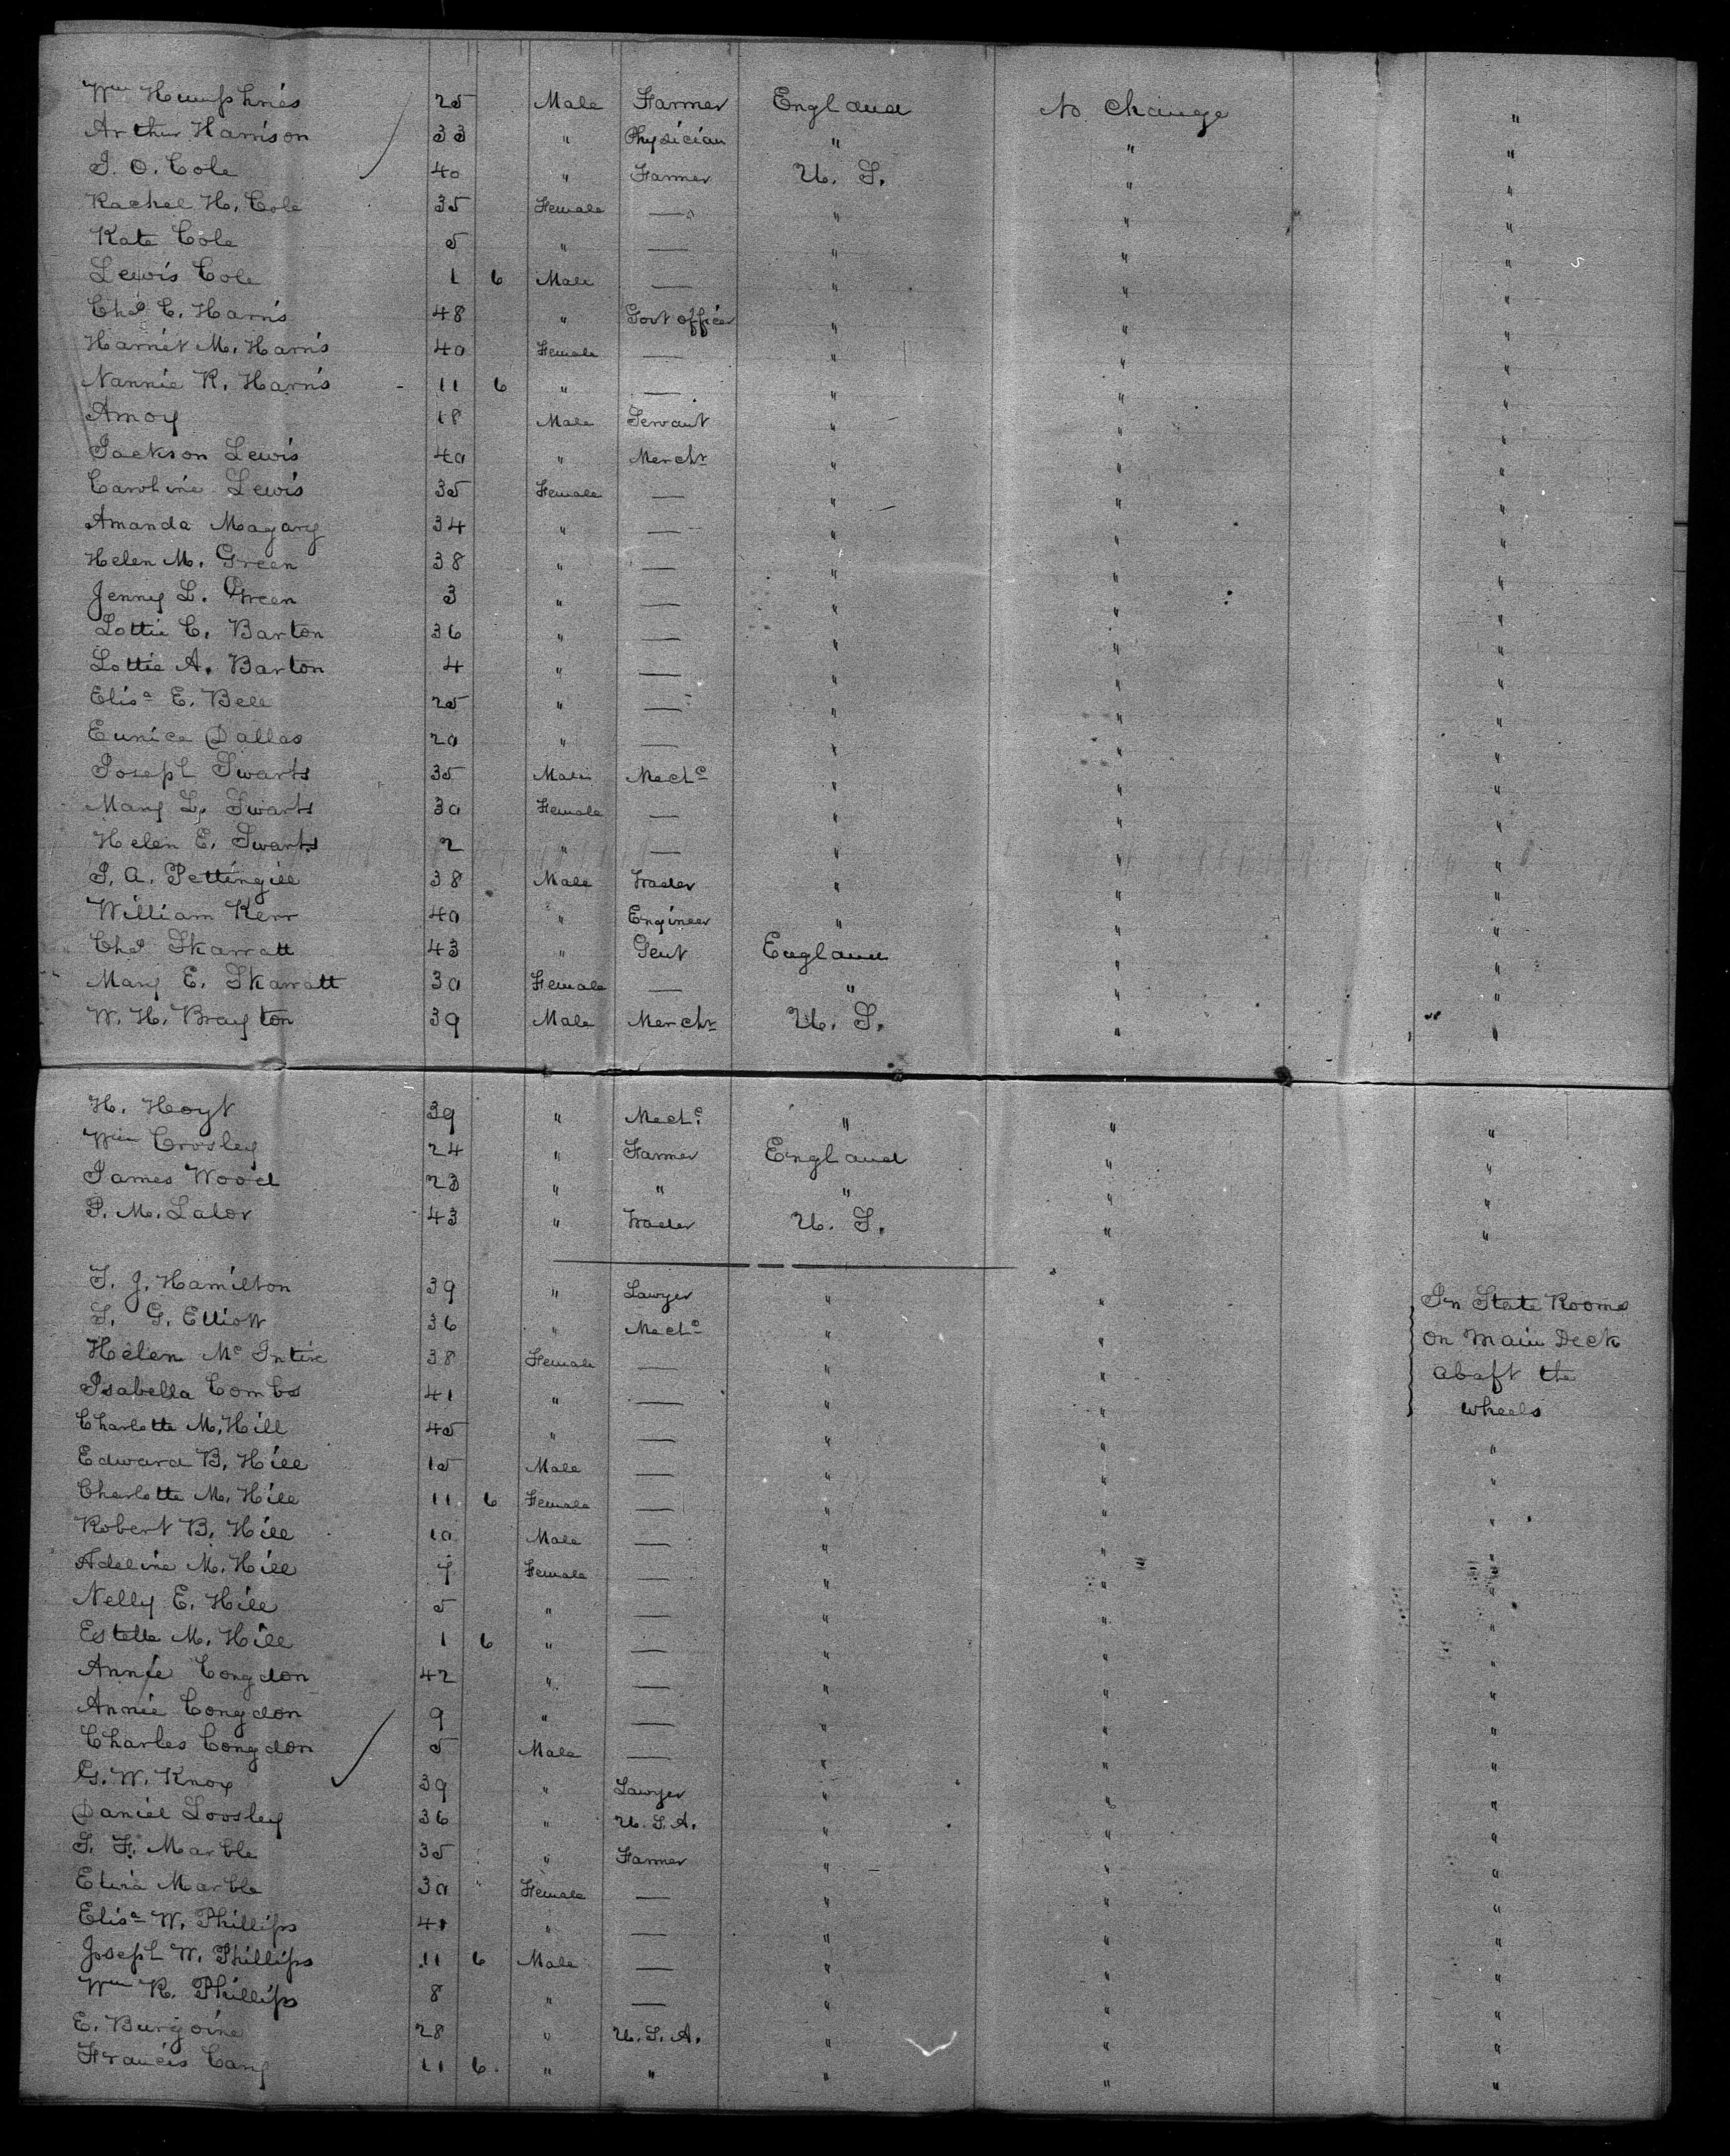 Wm Humphries 25 Male Farmer England No Change "
Arthur Harrison 33 " Physician " " "
J. O. Cole 40 " Farmer U. S. " "
Rachel H. Cole 35 Female — " " "
Kate Cole 5 " — " " "
Lewis Cole 1 6 Male — " " "
Chas C. Harris 48 " Govt officer " " "
Harriet M. Harris 40 Female — " " "
Nannie R. Harris 11 6 " — " " "
Amoy 18 Male Servant " " "
Jackson Lewis 40 " Mercht " " "
Caroline Lewis 35 Female — " " "
Amanda Magary 34 " — " " "
Helen M. Green 38 " — " " "
Jenny L. Green 3 " — " " "
Lottie C. Barton 36 " — " " "
Lottie A. Barton 4 " — " " "
Elisa E. Bell 25 " — " " "
Eunice Dallas 20 " — " " "
Joseph Swarts 35 Male Mechc " " "
Mary L. Swarts 30 Female — " " "
Helen E. Swarts 2 " — " " "
J. A. Pettingill 38 Male Trader " " "
William Kerr 40 " Engineer " " "
Chas Skarratt 43 " Gent England " "
Mary E. Skarratt 30 Female — " " "
W. H. Brayton 39 Male Mercht U. S. " "
H. Hoyt 39 " Mechc " " "
Wm Crosley 24 " Farmer England " "
James Wood 23 " " " " "
P. M. Lalor 43 " Trader U. S. " "
T. J. Hamilton 39 " Lawyer " " In State Rooms
S. G. Elliott 36 " Mechc " " on Main Deck
Helen Mc Intire 38 Female — " " abaft the
Isabella Combs 41 " — " " wheels
Charlotte M. Hill 45 " — " " "
Edward B. Hill 15 Male — " " "
Charlotte M. Hill 11 6 Female — " " "
Robert B. Hill 10 Male — " " "
Adeline M. Hill 7 Female — " " "
Nelly E. Hill 5 " — " " "
Estelle M. Hill 1 6 " — " " "
Annie Congdon 42 " — " " "
Annie Congdon 9 " — " " "
Charles Congdon 5 Male — " " "
G. W. Knox 39 " Lawyer " " "
Daniel Loosley 36 " U. S. A. " " "
S. F. Marble 35 " Farmer " " "
Marble 30 Female — " " "
Elisa W. Phillips 40 " — " " "
Joseph W. Phillips 11 6 Male — " " "
Wm R. Phillips 8 " — " " "
E. Burgoine 28 " U. S. A. " " "
Francis Cary 11 6 " " " " "